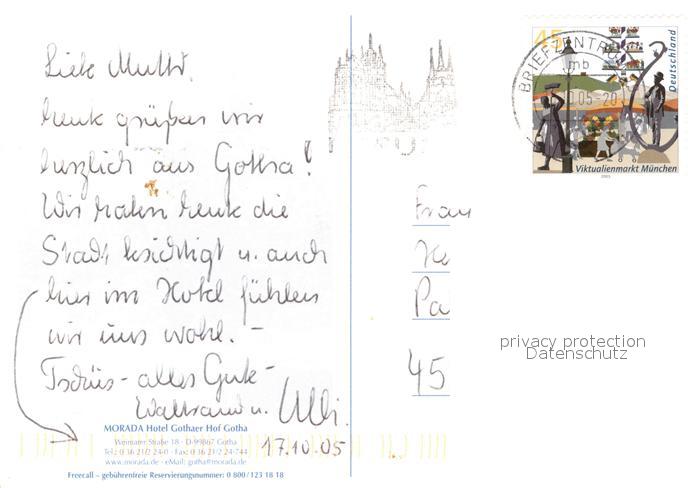 Liebe Mutti,
heute grüßen wir
herzlich aus Gotha!
Wir haben heute die
Stadt besichtigt u. auch
hier im Hotel fühlen
wir uns wohl. –
Tschüs - alles Gute -
Waltraud u. Ulli.
17.10.05
MORADA Hotel Gothaer Hof Gotha
Weimarer Straße 18 · D-99867 Gotha
Tel.: 0 36 21/2 24-0 · Fax: 0 36 21/2 24-744
www.morada.de · eMail: gotha@morada.de
Freecall – gebührenfreie Reservierungsnummer: 0 800 / 123 18 18
45
Deutschland
BRIEFZENTRUM
mb
.05-20
Viktualienmarkt München
2003
Frau
He
Pa
45
privacy protection
Datenschutz